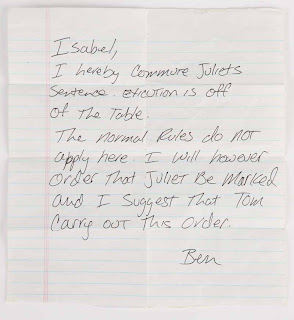 Isabel,
I hereby Commute Juliets
Sentence. Execution is off
of The Table.
The normal Rules do not
apply here. I will however
Order That Juliet Be Marked
and I Suggest That Tom
Carry out This Order.
Ben